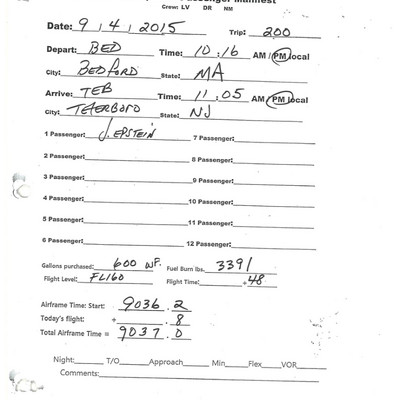 Passenger Manifest
Crew: LV DR NM
Date: 9 / 4 / 2015 Trip: 200
Depart: BED Time: 10:16 AM / PM local
City: BEDFORD State: MA
Arrive: TEB Time: 11:05 AM / PM local
City: TETERBORO State: NJ
1 Passenger: J. EPSTEIN 7 Passenger:
2 Passenger: 8 Passenger:
3 Passenger: 9 Passenger:
4 Passenger: 10 Passenger:
5 Passenger: 11 Passenger:
6 Passenger: 12 Passenger:
Gallons purchased: 600 WP. Fuel Burn lbs. 3391
Flight Level: FL160 Flight Time: +48
Airframe Time: Start: 9036.2
Today's flight: + .8
Total Airframe Time = 9037.0
Night: T/O Approach Min Flex VOR
Comments: